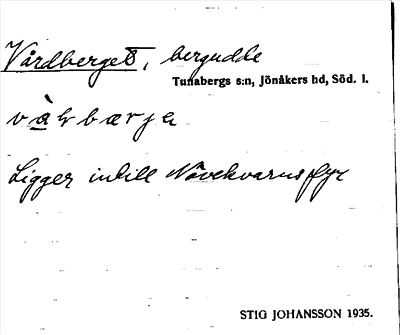 Vårdberget, bergudde
Tunabergs s:n, Jönåkers hd, Söd. l.
Ligger intill Nävekvarns fyr
STIG JOHANSSON 1935.